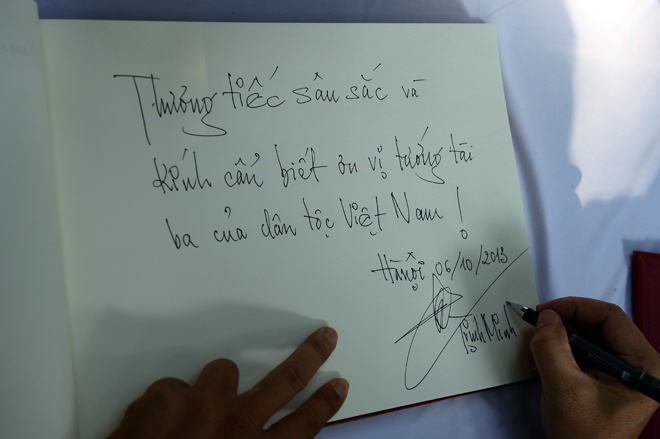 Thương tiếc sâu sắc và
kính cẩn biết ơn vị tướng tài
ba của dân tộc Việt Nam!
Hà nội 06/10/2013
Minh